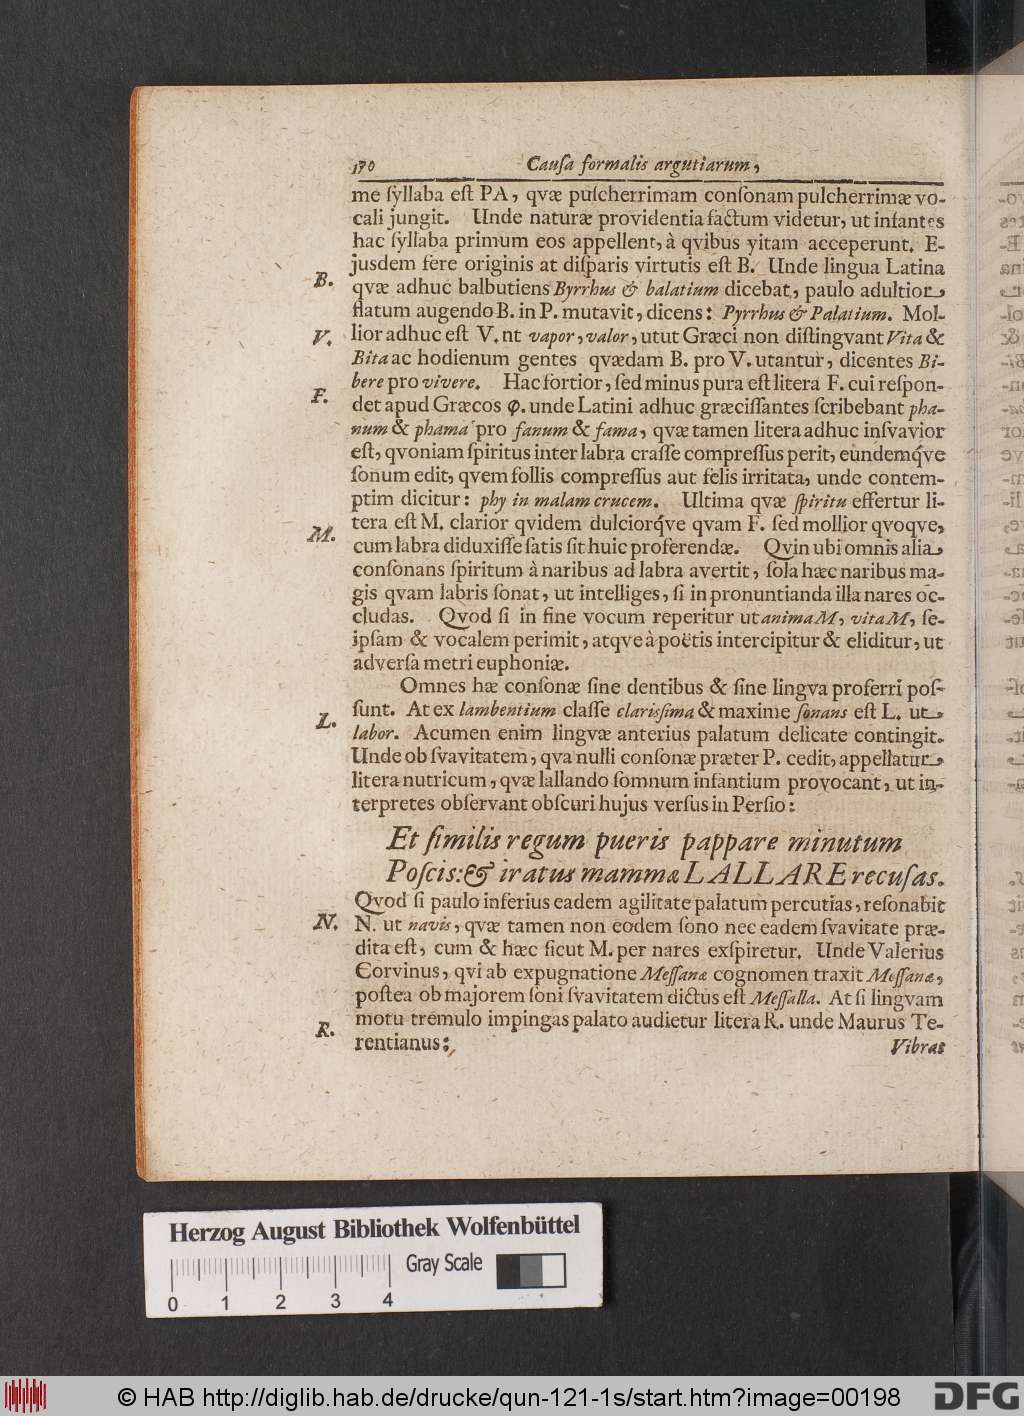 170 Cauſa formalis argutiarum,
me ſyllaba eſt PA, qvæ pulcherrimam conſonam pulcherrimæ vo-
cali jungit. Unde naturæ providentia factum videtur, ut infantes
hac ſyllaba primum eos appellent, à qvibus vitam acceperunt. E-
jusdem fere originis at diſparis virtutis eſt B. Unde lingua Latina
B. qvæ adhuc balbutiens Byrrhus & balatium dicebat, paulo adultior,
flatum augendo B. in P. mutavit, dicens: Pyrrhus & Palatium. Mol-
V. lior adhuc eſt V. nt vapor, valor, utut Græci non diſtingvant Vita &
Bita ac hodienum gentes qvædam B. pro V. utantur, dicentes Bi-
bere pro vivere. Hac fortior, ſed minus pura eſt litera F. cui reſpon-
F. det apud Græcos φ. unde Latini adhuc græciſſantes ſcribebant pha-
num & phama pro fanum & fama, qvæ tamen litera adhuc inſvavior
eſt, qvoniam ſpiritus inter labra craſſe compreſſus perit, eundemq́ve
ſonum edit, qvem follis compreſſus aut felis irritata, unde contem-
ptim dicitur: phy in malam crucem. Ultima qvæ ſpiritu effertur li-
M. tera eſt M. clarior qvidem dulciorq́ve qvam F. ſed mollior qvoqve,
cum labra diduxiſſe ſatis ſit huic proferendæ. Qvin ubi omnis alia
conſonans ſpiritum à naribus ad labra avertit, ſola hæc naribus ma-
gis qvam labris ſonat, ut intelliges, ſi in pronuntianda illa nares oc-
cludas. Qvod ſi in fine vocum reperitur ut animaM, vitaM, ſe-
ipſam & vocalem perimit, atqve à poëtis intercipitur & eliditur, ut
adverſa metri euphoniæ.
Omnes hæ conſonæ ſine dentibus & ſine lingva proferri poſ-
L. ſunt. At ex lambentium claſſe clariſsima & maxime ſonans eſt L. ut
labor. Acumen enim lingvæ anterius palatum delicate contingit.
Unde ob ſvavitatem, qva nulli conſonæ præter P. cedit, appellatur
litera nutricum, qvæ lallando ſomnum infantium provocant, ut in-
terpretes obſervant obſcuri hujus verſus in Perſio:
Et ſimilis regum pueris pappare minutum
Poſcis: & iratus mammæ LALLARE recuſas.
Qvod ſi paulo inferius eadem agilitate palatum percutias, reſonabit
N. N. ut navis, qvæ tamen non eodem ſono nec eadem ſvavitate præ-
dita eſt, cum & hæc ſicut M. per nares exſpiretur. Unde Valerius
Corvinus, qvi ab expugnatione Meſſanæ cognomen traxit Meſſanæ,
poſtea ob majorem ſoni ſvavitatem dictus eſt Meſſalla. At ſi lingvam
R. motu tremulo impingas palato audietur litera R. unde Maurus Te-
rentianus:
Vibras
Herzog August Bibliothek Wolfenbüttel
Gray Scale
0 1 2 3 4
© HAB http://diglib.hab.de/drucke/qun-121-1s/start.htm?image=00198
DFG